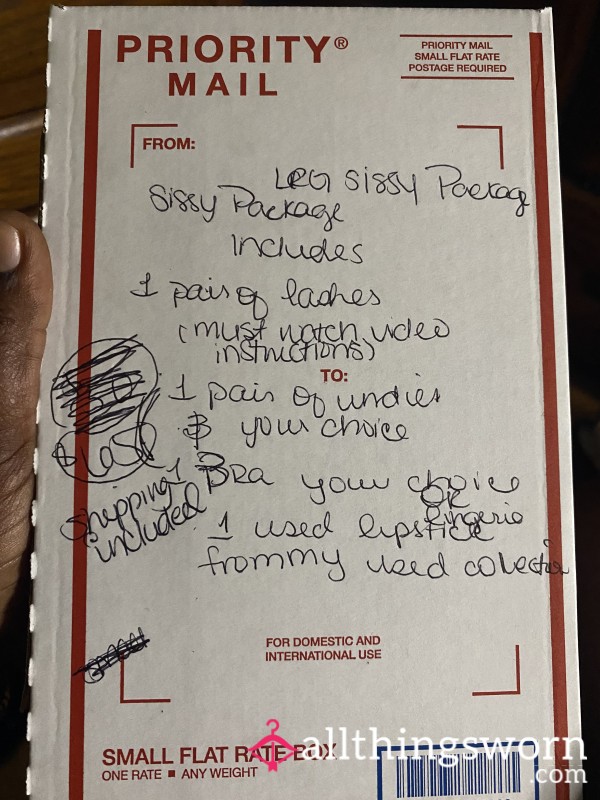 PRIORITY®
MAIL
PRIORITY MAIL
SMALL FLAT RATE
POSTAGE REQUIRED
FROM:
LRG Sissy Package
Sissy Package
Includes
1 pair of lashes
(must watch video
instructions)
TO:
1 pair of undies
$ your choice
1 Bra your choice
OR
lingerie
1 used lipstick
from my used collection
Shipping
included
FOR DOMESTIC AND
INTERNATIONAL USE
SMALL FLAT RATE BOX
ONE RATE ■ ANY WEIGHT
allthingsworn
.com